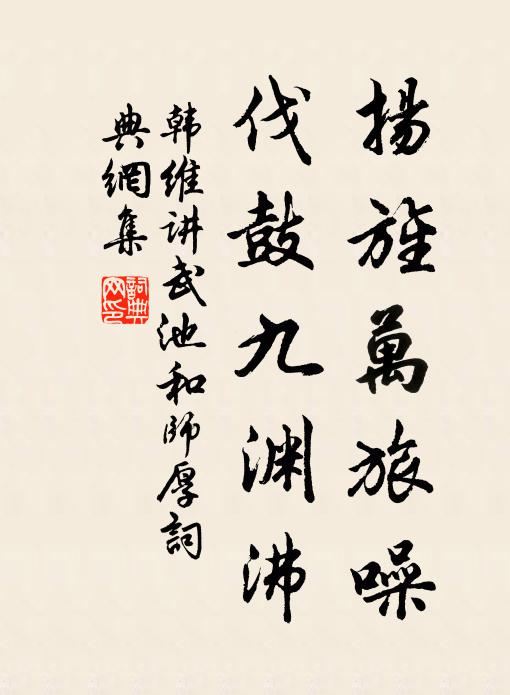 揚旌萬旅噪
伐鼓九渊沸
韩維讲武池和師厚詞
典網集
詞典网印